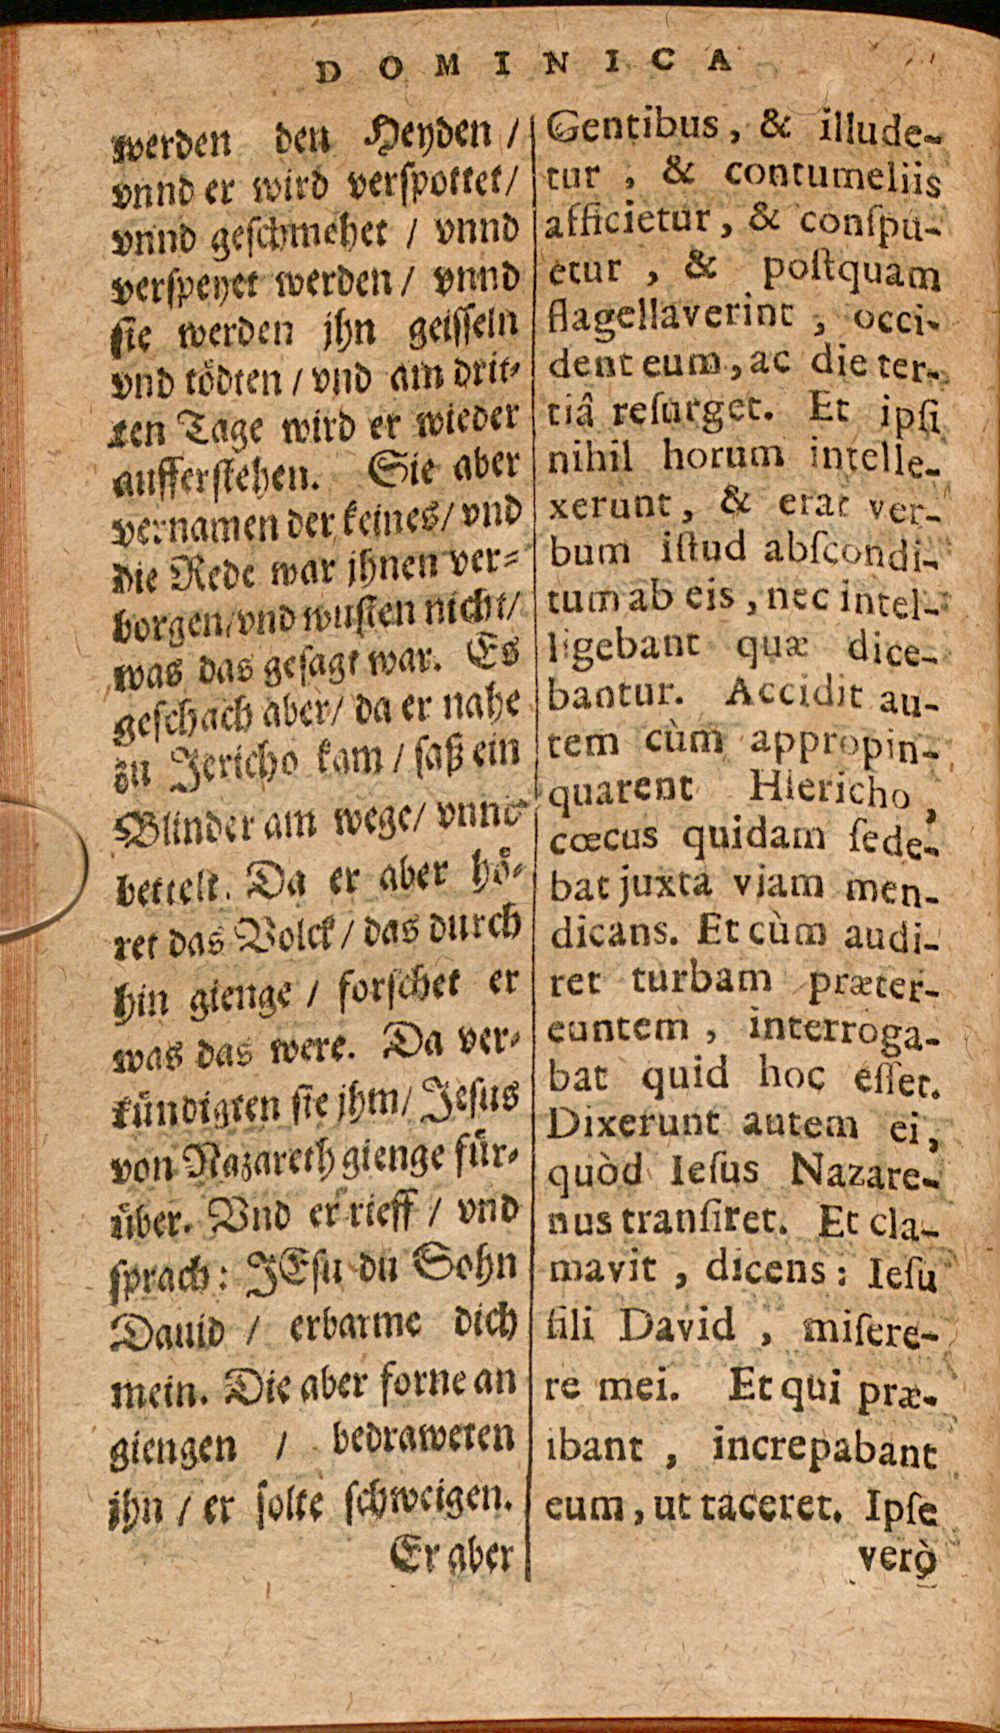 DOMINICA
werden den Heyden /
vnnd er wird verspottet /
vnnd geschmehet / vnnd
verspeyet werden / vnnd
sie werden jhn geisseln
vnd tödten / vnd am drit-
ten Tage wird er wieder
aufferstehen. Sie aber
vernamen der keines / vnd
die Rede war jhnen ver-
borgen / vnd wusten nicht /
was das gesagt war. Es
geschach aber / da er nahe
zu Jericho kam / saß ein
Blinder am wege / vnnd
bettelt. Da er aber hö-
ret das Volck / das durch
hin gienge / forschet er
was das were. Da ver-
kündigten sie jhm / Jesus
von Nazareth gienge für-
über. Vnd er rieff / vnd
sprach: JEsu du Sohn
Dauid / erbarme dich
mein. Die aber forne an
giengen / bedraweten
jhn / er solte schweigen.
Er aber
Gentibus, & illude-
tur, & contumeliis
afficietur, & conſpu-
etur, & poſtquam
flagellaverint, occi-
dent eum, ac die ter-
tiâ reſurget. Et ipſi
nihil horum intelle-
xerunt, & erat ver-
bum iſtud abſcondi-
tum ab eis, nec intel-
ligebant quæ dice-
bantur. Accidit au-
tem cùm appropin-
quarent Hiericho,
cœcus quidam ſede-
bat juxta viam men-
dicans. Et cùm audi-
ret turbam præter-
euntem, interroga-
bat quid hoc eſſet.
Dixerunt autem ei,
quòd Ieſus Nazare-
nus tranſiret. Et cla-
mavit, dicens: Ieſu
fili David, miſere-
re mei. Et qui præ-
ibant, increpabant
eum, ut taceret. Ipſe
verò